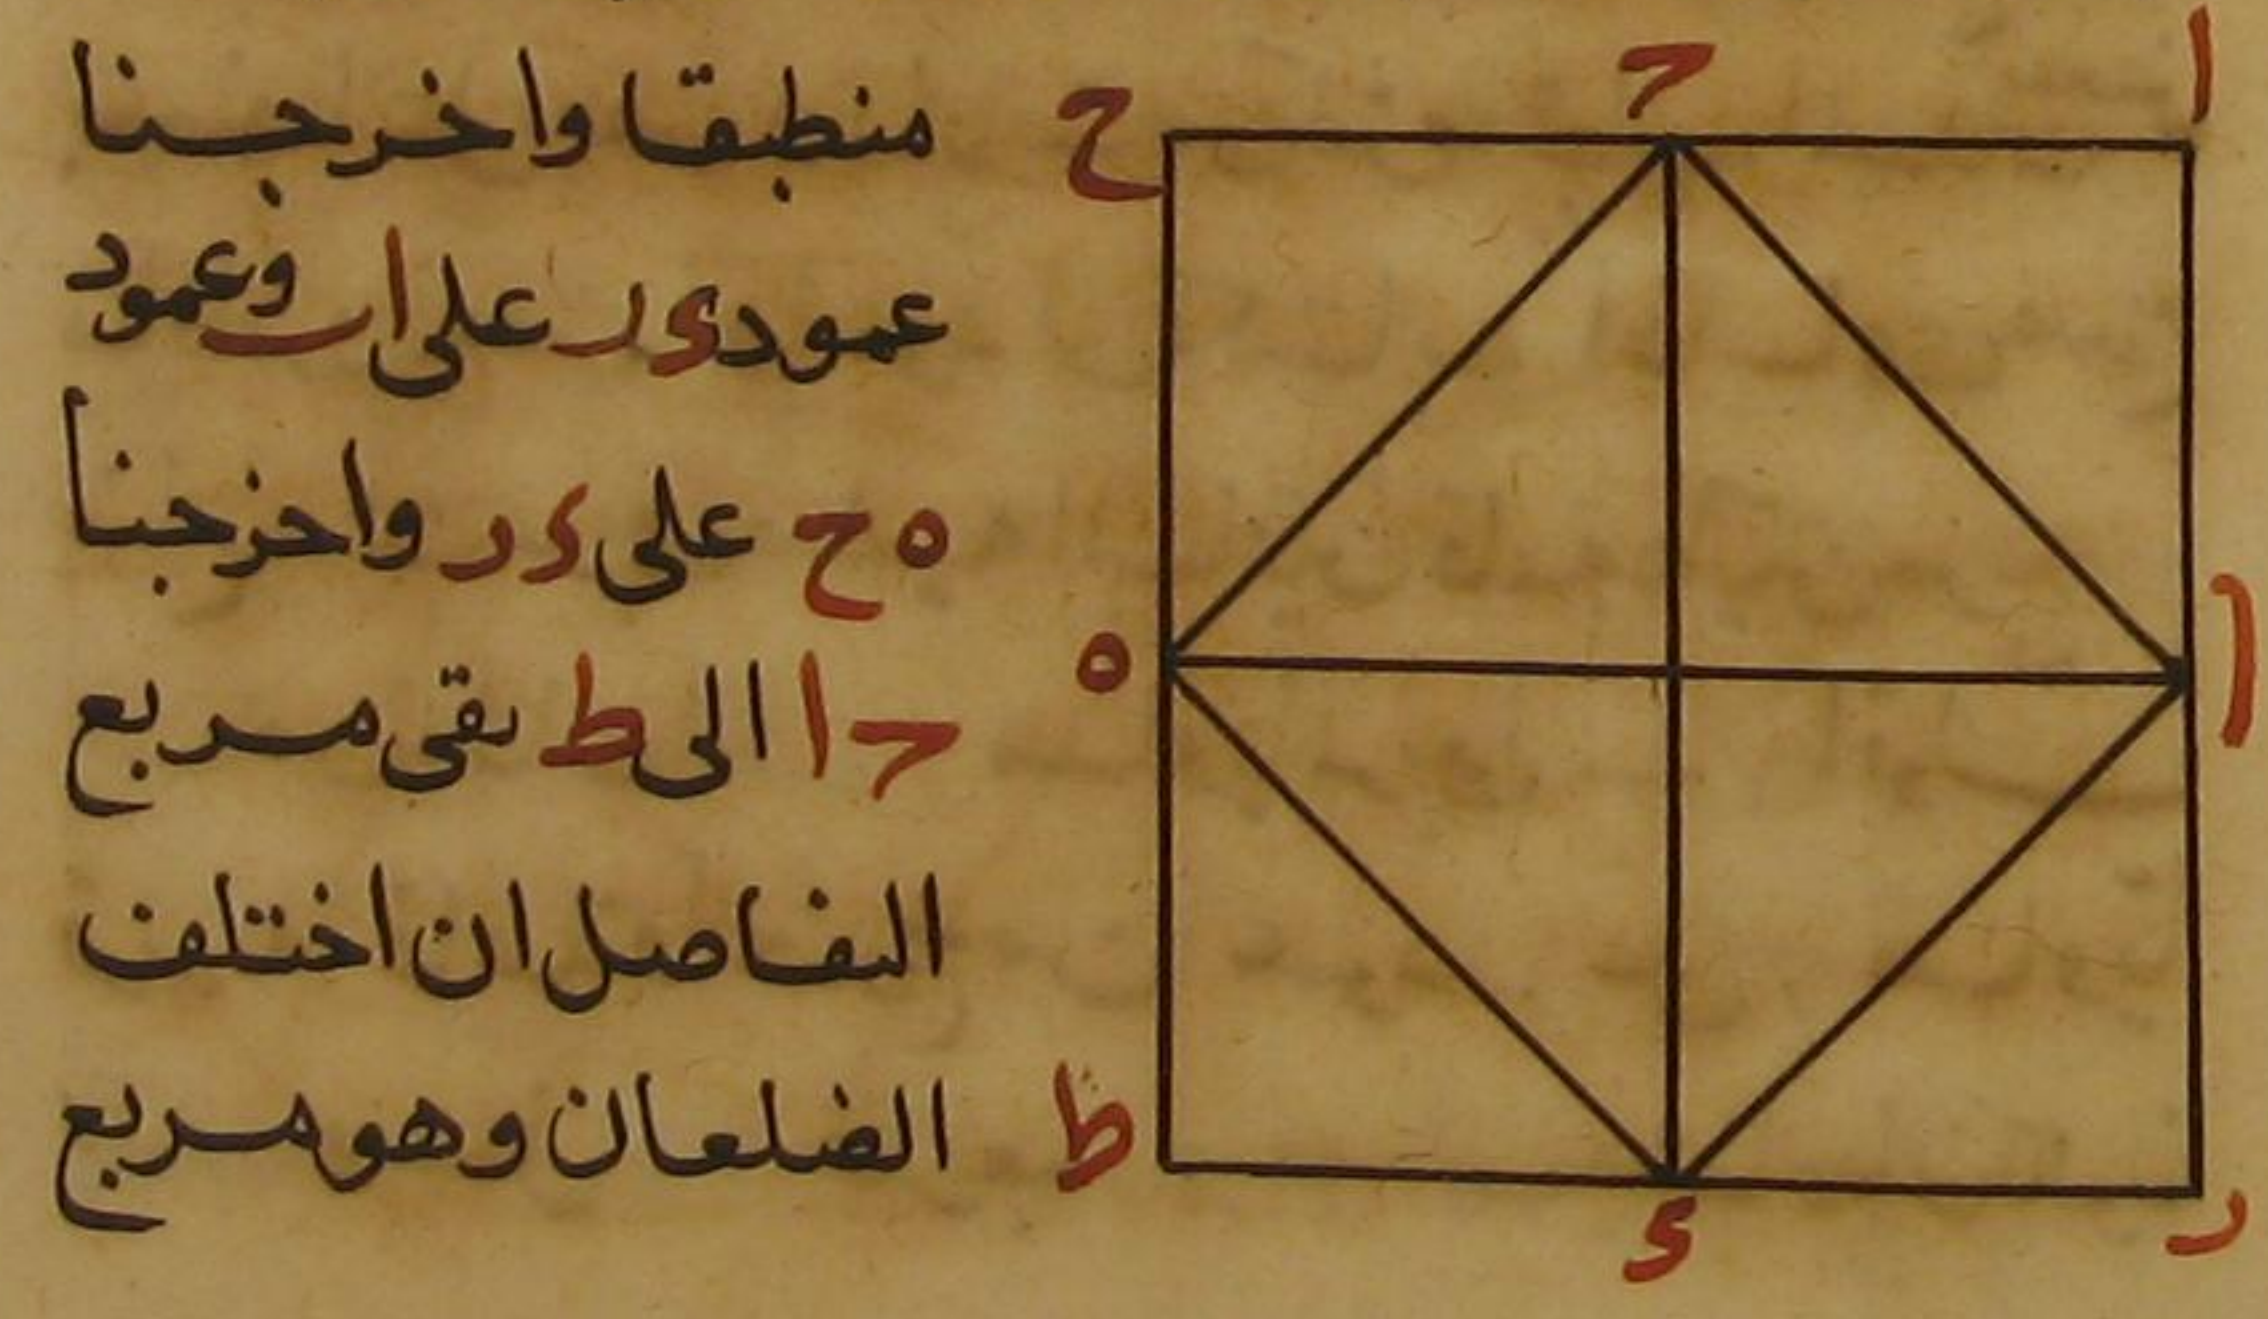 منطبقا واخرجنا
عمود ى ر على ا ٮ وعمود
ه ح على ى ر واخرجنا
حـ ا الى ط ىقى مربع
الفاصل ان اختلف
الضلعان وهو مربع
ا
حـ
ح
ا
ه
ط
ى
ر